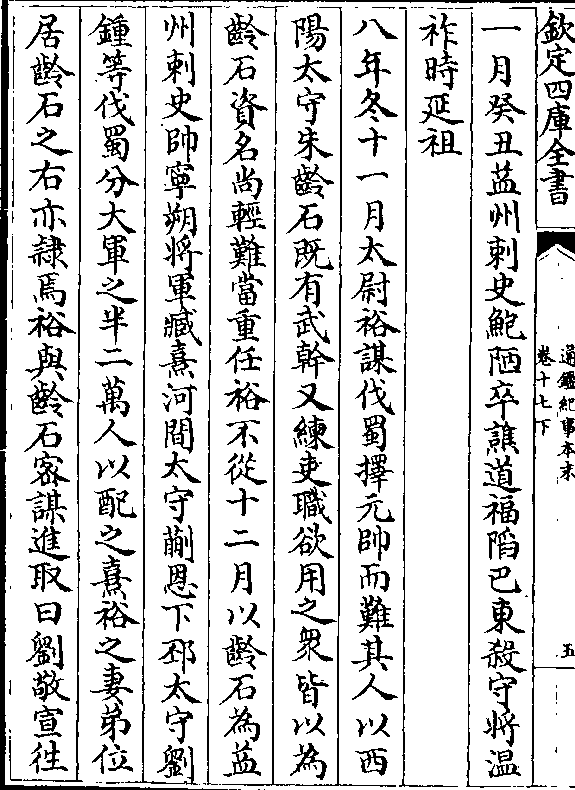 欽定四庫全書
通鑑紀事本末
卷十七下
五
一月癸丑益州刺史鮑陋卒譙道福陷巴東殺守將温
祚時延祖
八年冬十一月太尉裕謀伐蜀擇元帥而難其人以西
陽太守朱齡石既有武幹又練吏職欲用之衆皆以為
齡石資名尚輕難當重任裕不從十二月以齡石為益
州刺史帥寧朔將軍臧熹河間太守蒯恩下邳太守劉
鍾等伐蜀分大軍之半二萬人以配之熹裕之妻弟位
居齡石之右亦隷焉裕與齡石宻謀進取曰劉敬宣徃